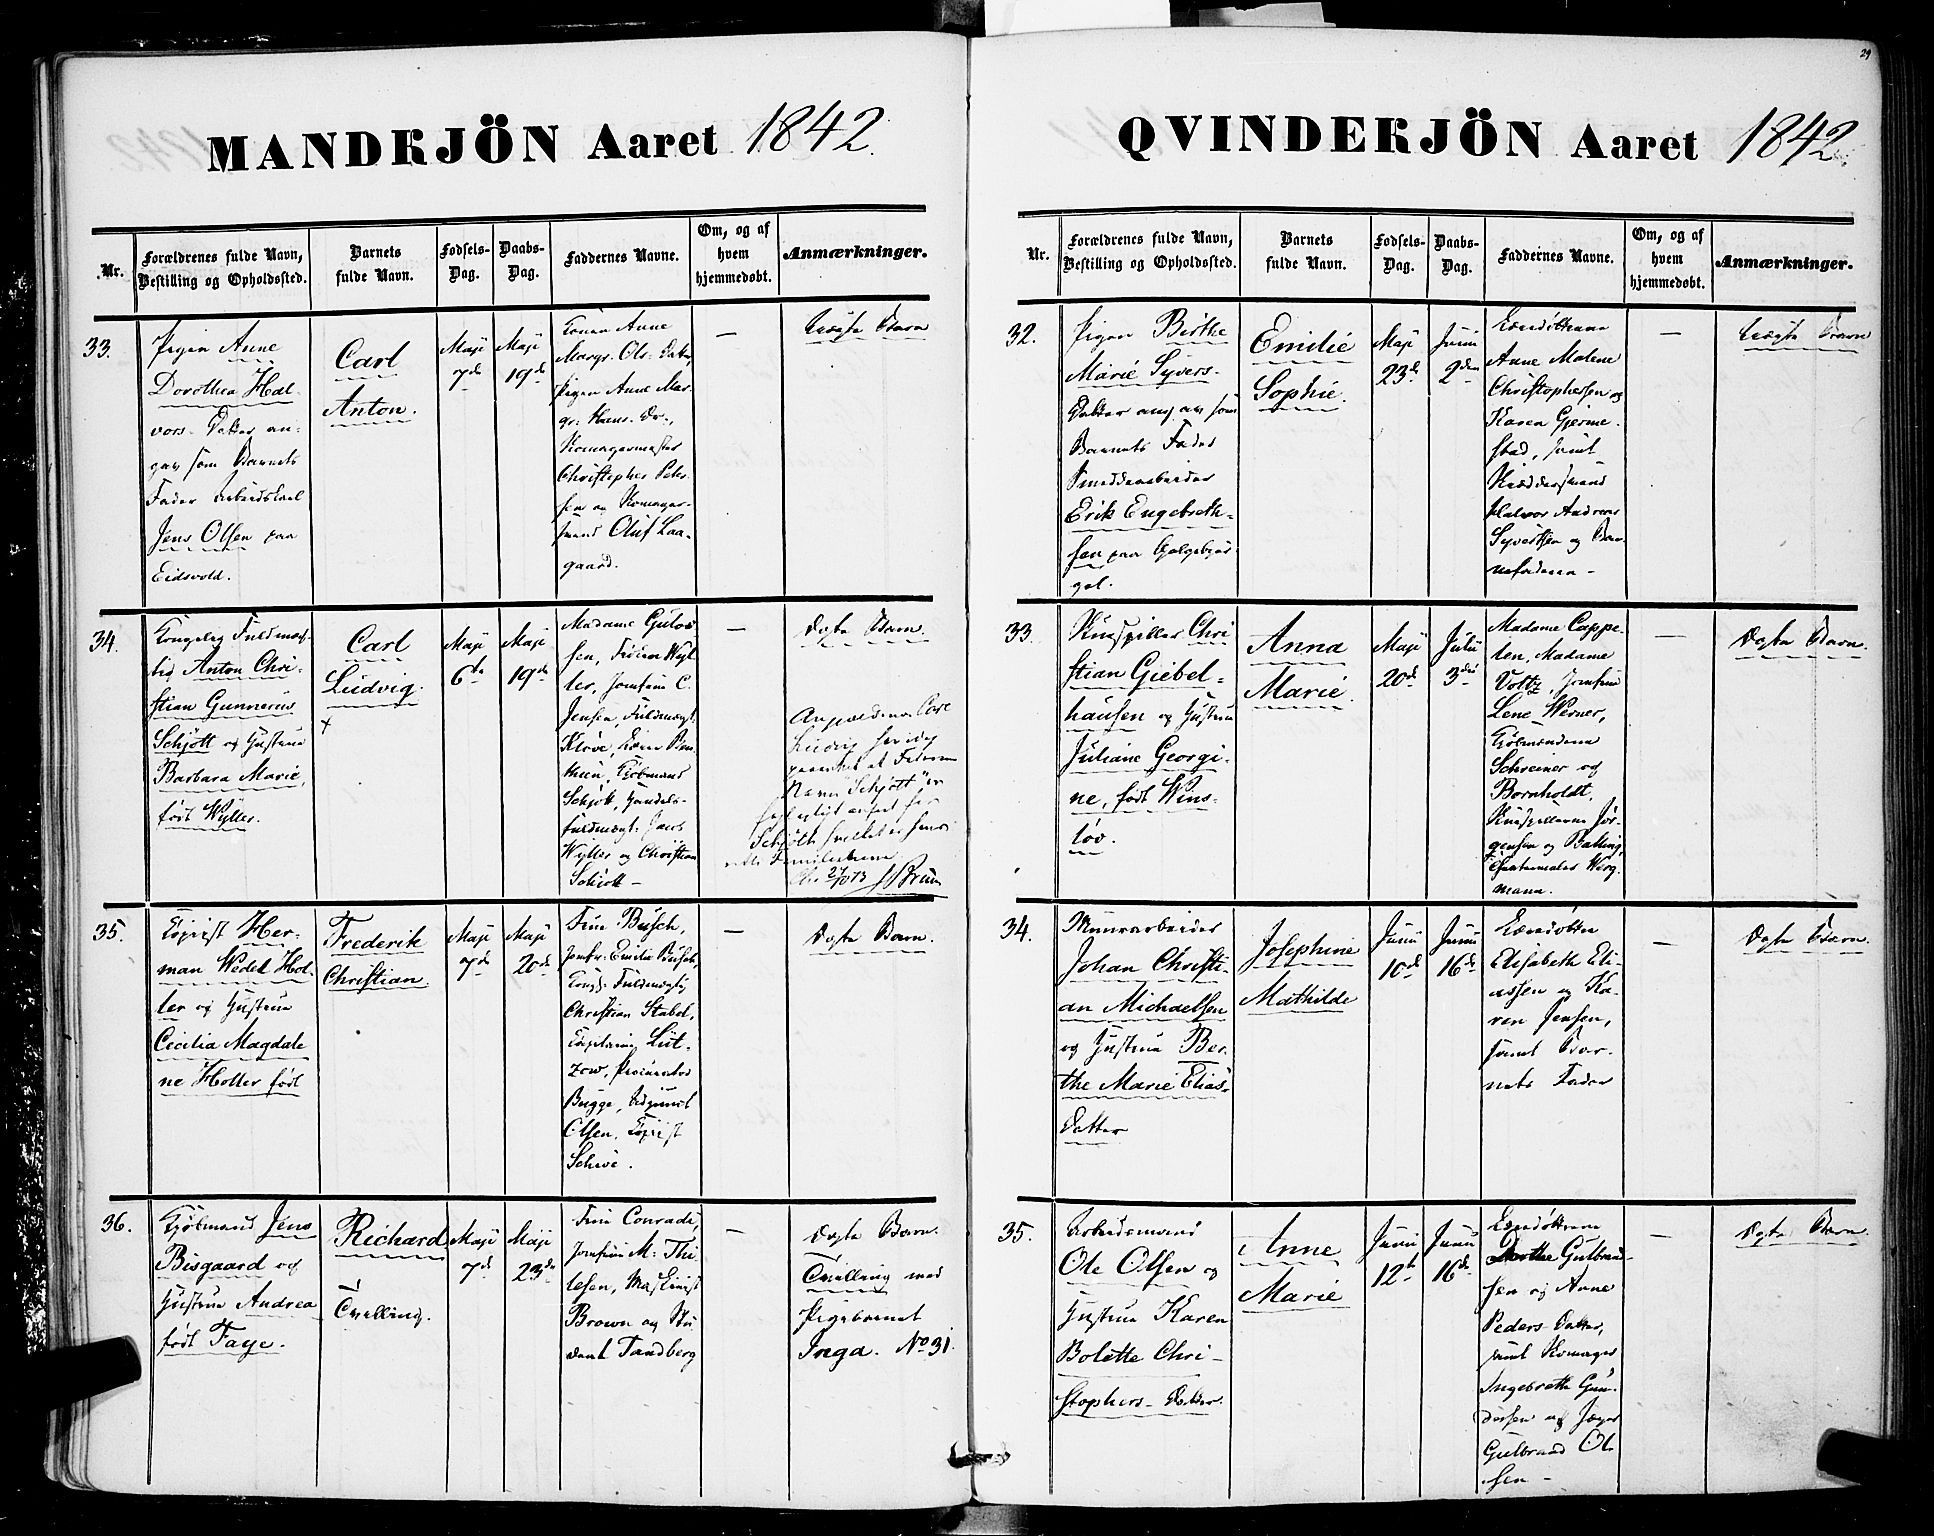 29
MANDKJÖN Aaret 1842.
Nr.
Forældrenes fulde Navn,
Bestilling og Opholdssted.
Barnets
fulde Navn.
Fødsels-
Dag.
Daabs-
Dag.
Faddernes Navne.
Om, og af
hvem
hjemmedøbt.
Anmærkninger.
33.
Pigen Anne
Dorothea Hal-
vors-Datter an-
gav som Barnets
Fader
Jens Olsen paa
Eidsvold.
Carl
Anton.
Maji
7de
Maji
19de
Konen Anne
Margr. Ols-Datter,
Pigen Anne Mar-
gr. Hans-Dr.,
Christopher Peter-
sen og
svend Oluf Laa-
gaard.
—
Uægte Barn
34.
Kongelig Fuldmæg-
tig Anton Chri-
stian Gunnerus
Schjött og Hustrue
Barbara Marie,
födt Wyller.
Carl
Ludvig.
+
Maji
6te
Maji
19de
Madame Gulov-
sen, Frøken Wyl-
ler, Jomfrue C.
Jensen, Fuldmægt.
Klöve,
Kjøbmand
Schjött, Handels-
fuldmægt. Jacob
Wyller og Christian
Schjött —
—
Ægte Barn.
Carl
Ludvig
Navn "Schjött" er
Schjöth
27/10 73
35.
Kopist Her-
man Wedel Hol-
ter og Hustrue
Cecilia Magdale-
ne Holter født
Frederik
Christian.
Maji
7de
Maji
20de
Frue Busch,
Jomfr. Emilia Busch,
Kongl. Fuldmægtig
Christian Stabel,
Capitaine Lüt-
zow, Procurator
Bugge,
Olsen, Kopist
—
Ægte Barn.
36.
Kjøbmand Jens
Bisgaard og
Hustrue Andrea
født Faye.
Richard
Tvilling.
Maji
7de
Maji
23de
Frue Conradi,
Jomfrue M. Thi-
lesen, Maskinist
Brown og Stu-
dent Tandberg
—
Ægte Barn.
Tvilling med
Pigebarnet
Inga. No 31.
QVINDEKJÖN Aaret 1842.
Nr.
Forældrenes fulde Navn,
Bestilling og Opholdssted.
Barnets
fulde Navn.
Fødsels-
Dag.
Daabs-
Dag.
Faddernes Navne.
Om, og af
hvem
hjemmedøbt.
Anmærkninger.
32.
Pigen Birthe
Marie Syvers-
Datter angav som
Barnets Fader
Smeddearbeider
Erik Engebreth-
sen paa Galgebjer-
get.
Emilie
Sophie.
Maji
23de
Junii
2den
Anne Malene
Christophersen og
Karen Gjerme-
stad, samt
Halvor Andreas
Syvertsen og Bar-
nefaderen —
—
Uægte Barn
33.
Chri-
stian Giebel-
hausen og Hustrue
Juliane Georgi-
ne, födt Wins-
löv.
Anna
Marie.
Maji
20de
3die
Madame Cappe-
len, Madame
Voltz, Jomfrue
Lene Werner,
Kjøbmændene
Schreiner og
Bornholdt,
Jör-
gensen og Balling,
Werg-
mann.
—
Ægte Barn.
34.
Muurarbeider
Johan Christi-
an Michaelsen
og Hustrue Ber-
the Marie Elias-
Datter
Josephine
Mathilde
Junii
10de
Junii
16de
Elisabeth Eli-
assen og Ka-
ren Jensen,
samt Bar-
nets Fader
—
Ægte Barn.
35.
Arbeidsmand
Ole Olsen og
Hustrue Karen
Bolette Chri-
stophers-Datter.
Anne
Marie
Junii
12te
Junii
16de
Dorthe Gulbrand-
sen og Anne
Peders-Datter,
samt
Ingebreth Gun-
dersen og
Gulbrand Ol-
sen —
—
Ægte Barn.